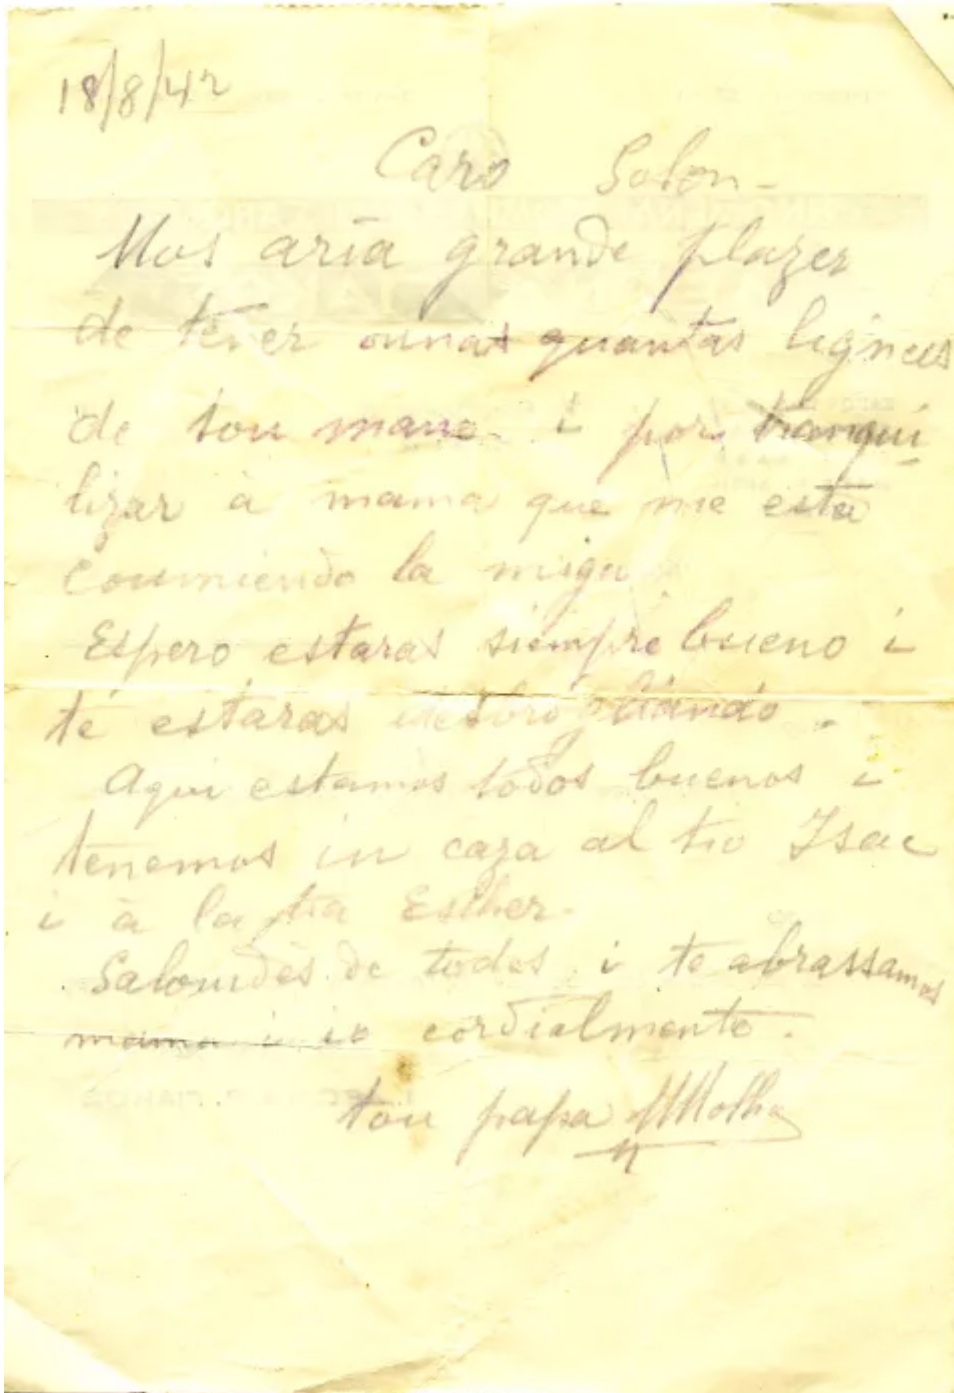 18/8/42
Caro Solon-
Mos aría grande plazer
de tener ounas quantas lignas
de tou mano i por tranqui
lizar à mama que me esta
coumiendo la miga
Espero estaras siempre bueno i
té estaras
Aqui estamos todos buenos i
tenemos in caza al tio Isac
i à la tia Esther.
Saloudès de todos i te abrassamos
mama i io cordialmente.
tou papa MMolho